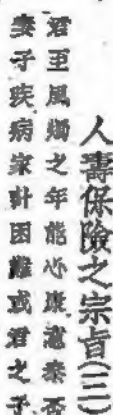 人壽保險之宗旨(三)
君至風燭之年能心康意泰否
妻子疾病家計困難或君之子